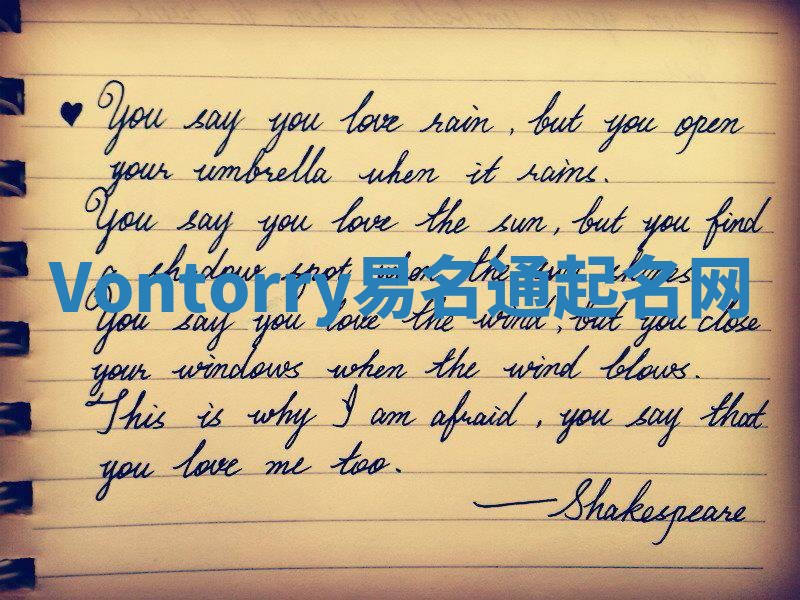 ♥ You say you love rain, but you open
your umbrella when it rains.
You say you love the sun, but you find
a shadow spot when the sun shines.
Vontorry易名通起名网
You say you love the wind, but you close
your windows when the wind blows.
This is why I am afraid, you say that
you love me too.
—Shakespeare